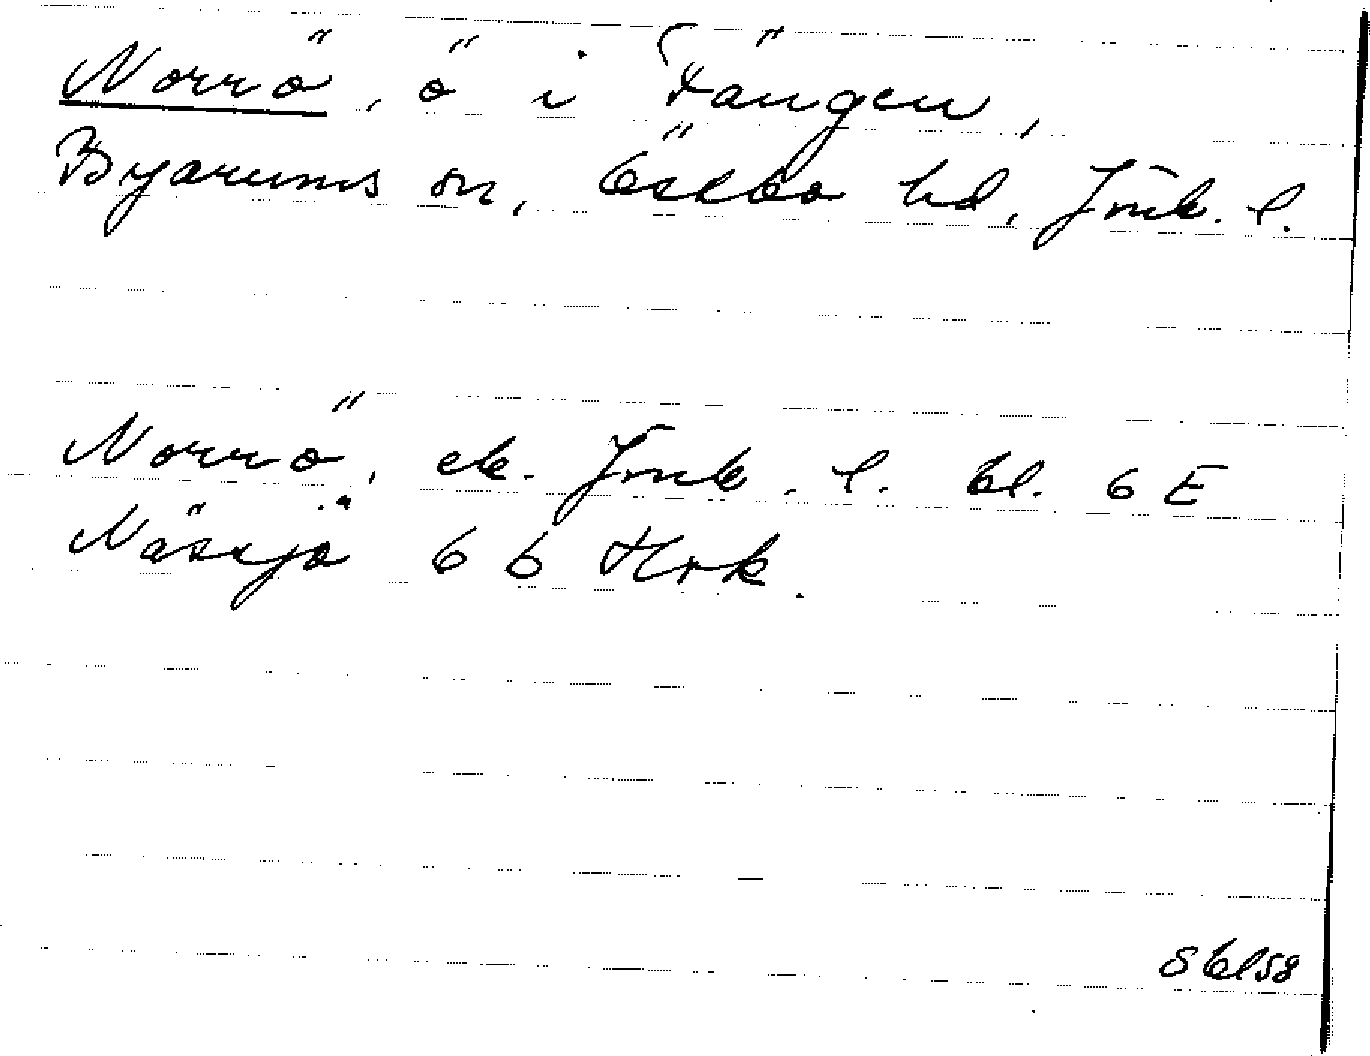 Norrö, ö i Fängen,
Byarums sn, Östbo hd, Jönk. l.
Norrö, ek. Jönk. l. bl. 6 E
Nässjö 6 b Hrk.